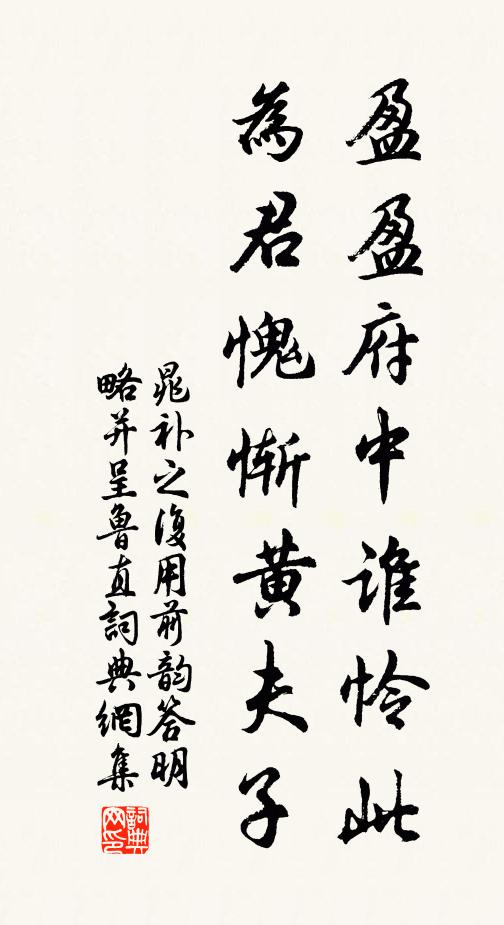 盈盈府中谁怜此
為君愧惭黄夫子
晁补之復用前韵答明
略并呈魯直詞典網集
詞典
网印